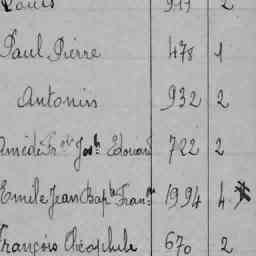 Louis 917 2
Paul Pierre 478 1
Antonin 932 2
Amédé Fr ois Josh Edouard 722 2
Emile Jean Bap te Fran çs 1994 4
François Théophile 670 2